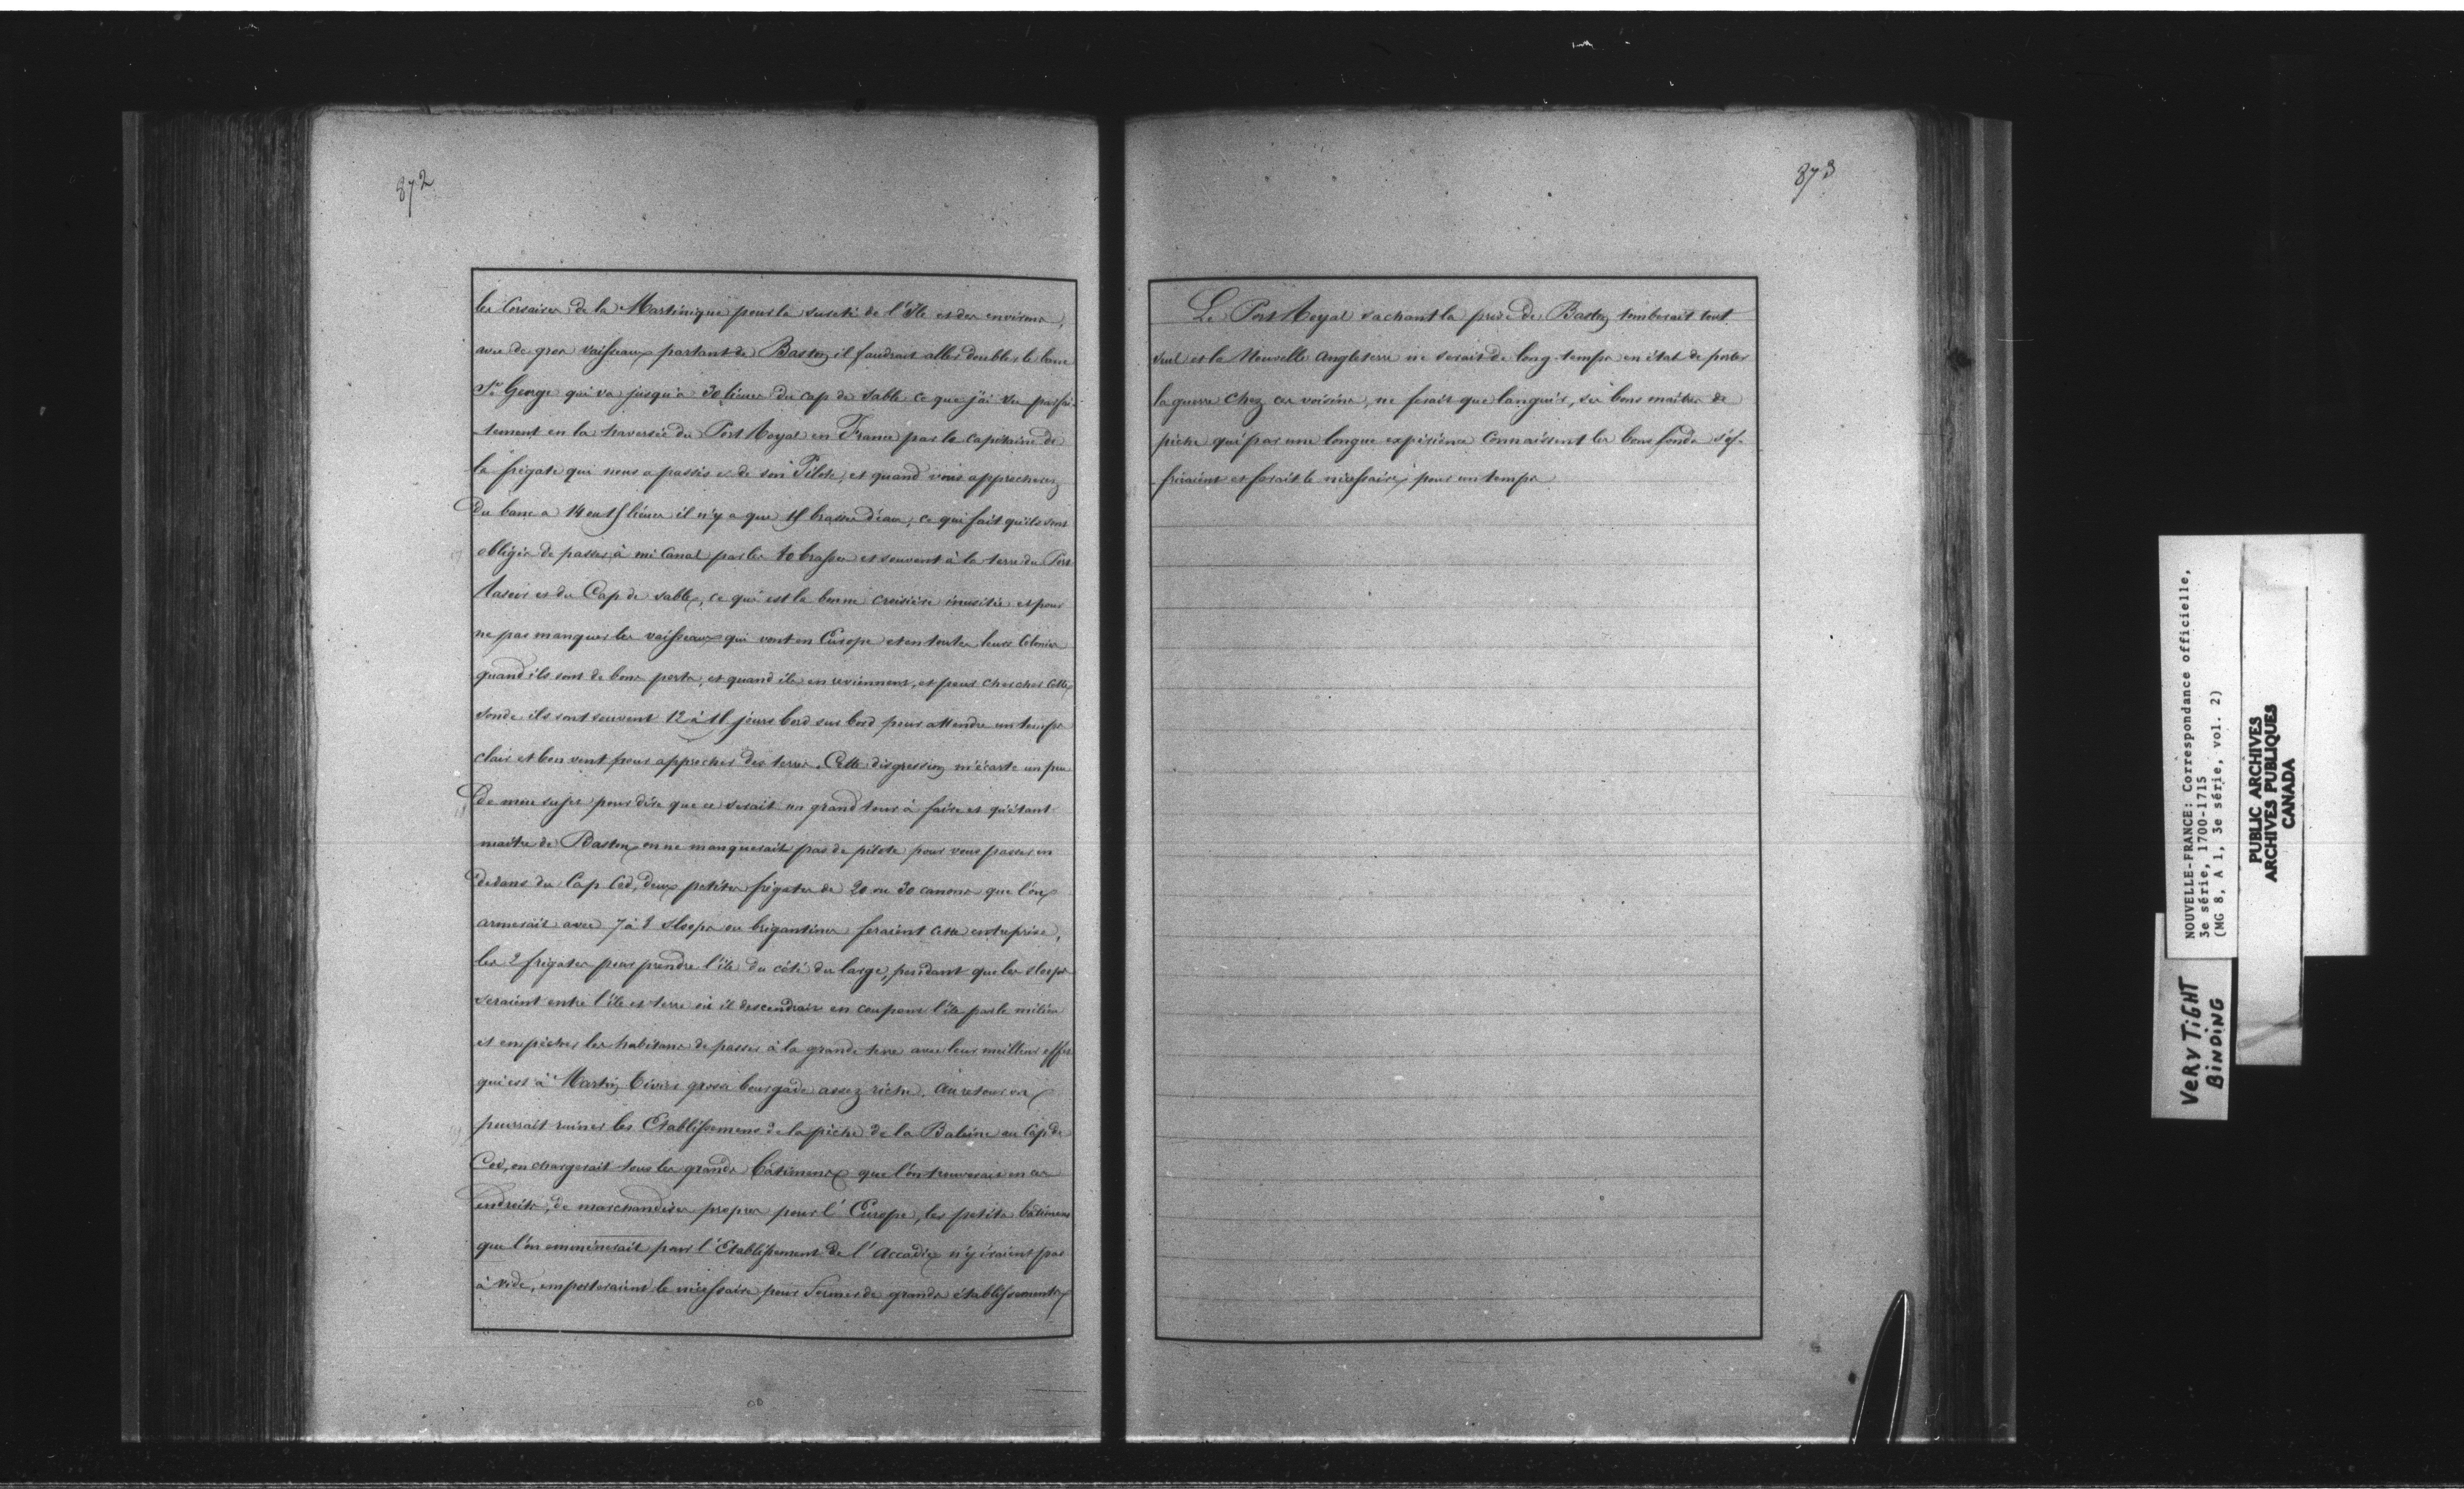 872
les Corsaires de la Martinique pour la sureté de l'Ile et des environs,
avec de gros vaisseaux partant de Baston il faudrait aller doubler le banc
St. George qui va jusqu'a 30 lieues du cap de Sable ce que j'ai vu parfai-
-tement en la traversée du Port Royal en France par le Capitaine de
la frégate qui nous a passés et de son Pilote, et quand vous approcherez
Du banc a 14 ou 15 lieues il n'y a que 15 brasses d'eau, ce qui fait qu'ils sont
obligés de passer à mi Canal par les brasses et souvent à la terre du Port
Rasoir et du Cap de Sable, ce qui est la bonne croisière inusitée et pour
ne pas manquer les vaisseaux qui vont en Europe et en toutes leurs Colonies
quand ils sont de bons ports, et quand ils en reviennent, et pour chercher cette
sonde ils sont souvent 12 à 15 jours bord sur bord pour attendre un temps
clair et bon vent pour approcher des terres. Cette disgression m'écarte un peu
De mon sujet pour dire que ce serait un grand tour à faire et qu'étant
maître de Baston on ne manquerait pas de pilote pour vous passer en
dedans du Cap Cod, deux petites frégates de 20 ou 30 canons que l'on
armerait avec 7 à 8 Sloops ou brigantins feraient cette entreprise,
les 2 frégates pour prendre l'île du côté du large, pendant que les sloops
seraient entre l'île et terre où il descendrait en coupant l'île par le milieu
et empêcher les habitans de passer à la grande terre avec leur meilleur effet
qui est à Martin grosse bourgade assez riche. Au retour on
pourrait ruiner les Etablissemens de la pêche de la Baleine au Cap de
Cod, on chargerait tous les grands bâtimens que l'on trouverait en ces
endroits, de marchandises propres pour l'Europe, les petits bâtimens
que l'on emmènerait pour l'Etablissement de l'Accadie n'y iraient pas
à vide, emporteraient le nécessaire pour former de grands établissements
873
Le Port Royal sachant la prise de Baston tomberait tout
seul et la Nouvelle Angleterre ne serait de long-temps en état de porter
la guerre chez ces voisins, ne ferait que languir, ses bons maîtres de
pêche qui par une longue expérience connaissent les bons fonds s'of-
-friraient et ferait le nécessaire pour un temps
NOUVELLE-FRANCE: Correspondance officielle,
3e série, 1700-1715
(MG 8, A 1, 3e série, vol. 2)
PUBLIC ARCHIVES
ARCHIVES PUBLIQUES
CANADA
VERY TIGHT
BINDING